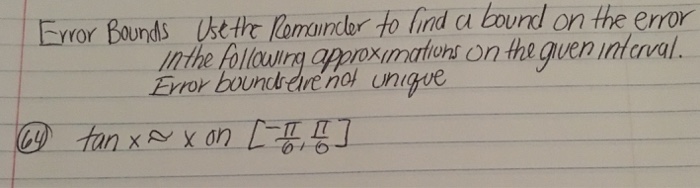 Error Bounds Use the Remainder to find a bound on the error
in the following approximations on the given interval.
Error bounds are not unique
64 tan x ≈ x on [-π/6, π/6]